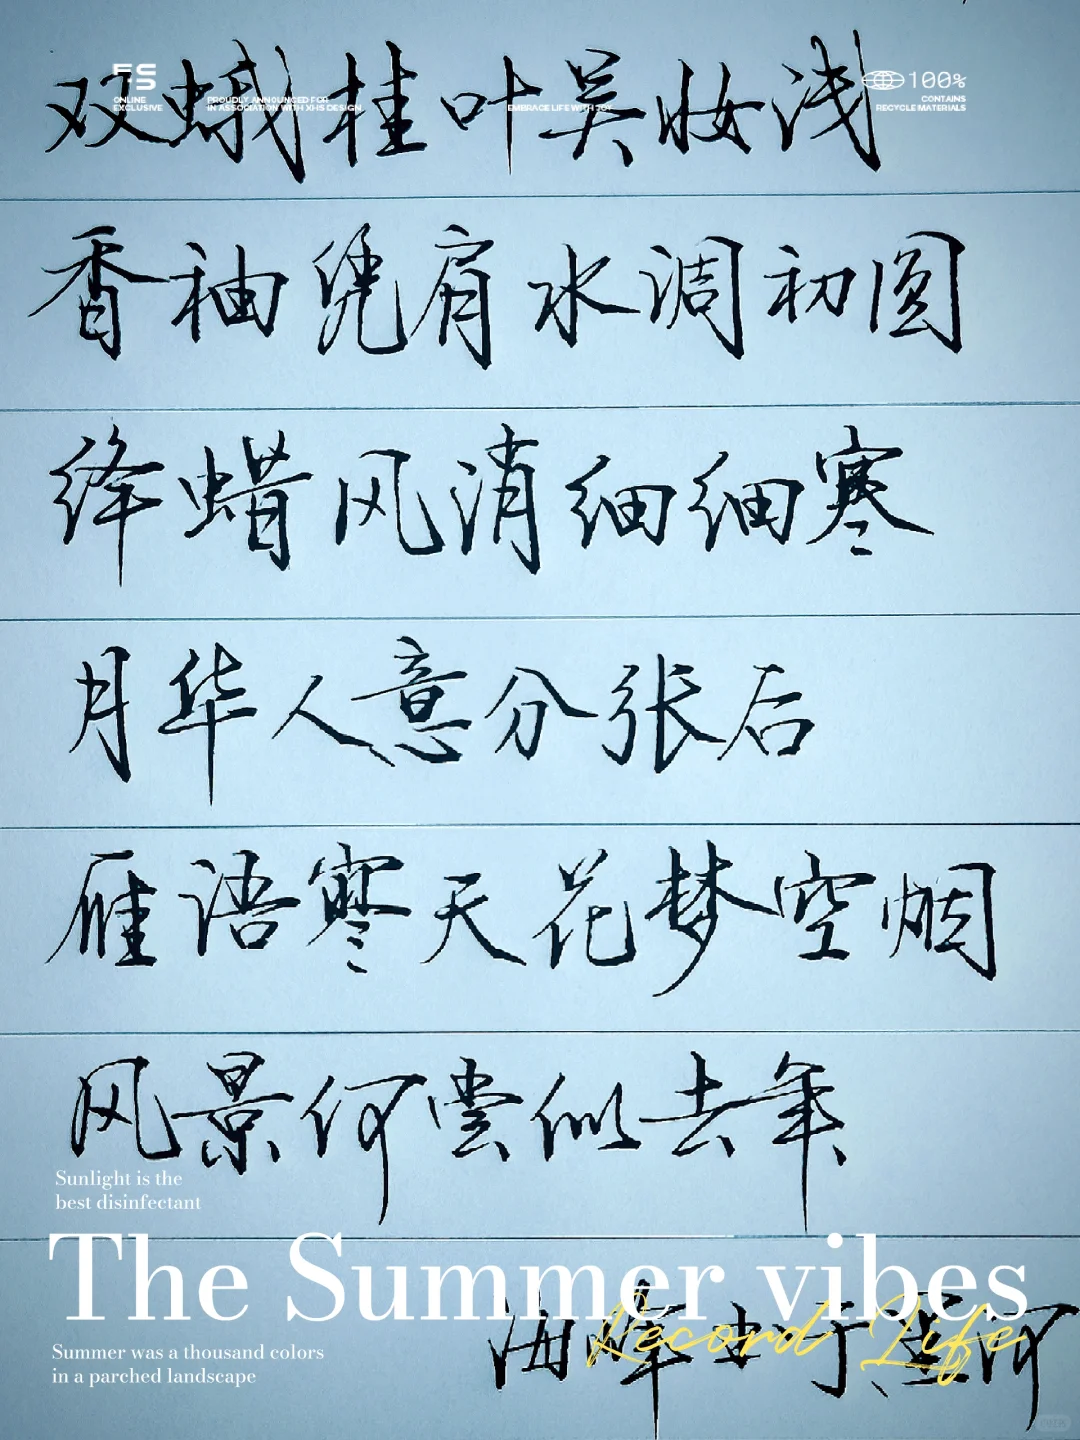 FS
ONLINE
EXCLUSIVE
PROUDLY ANNOUNCED FOR
IN ASSOCIATION WITH XHS DESIGN
EMBRACE LIFE WITH JOY
100%
CONTAINS
RECYCLE MATERIALS
双蛾桂叶吴妆浅
香袖凭肩水调初圆
绛蜡风消细细寒
月华人意分张后
雁语寒天花梦空烟
风景何尝似去年
Sunlight is the
best disinfectant
The Summer vibes
Record Life
海峰书于
Summer was a thousand colors
in a parched landscape